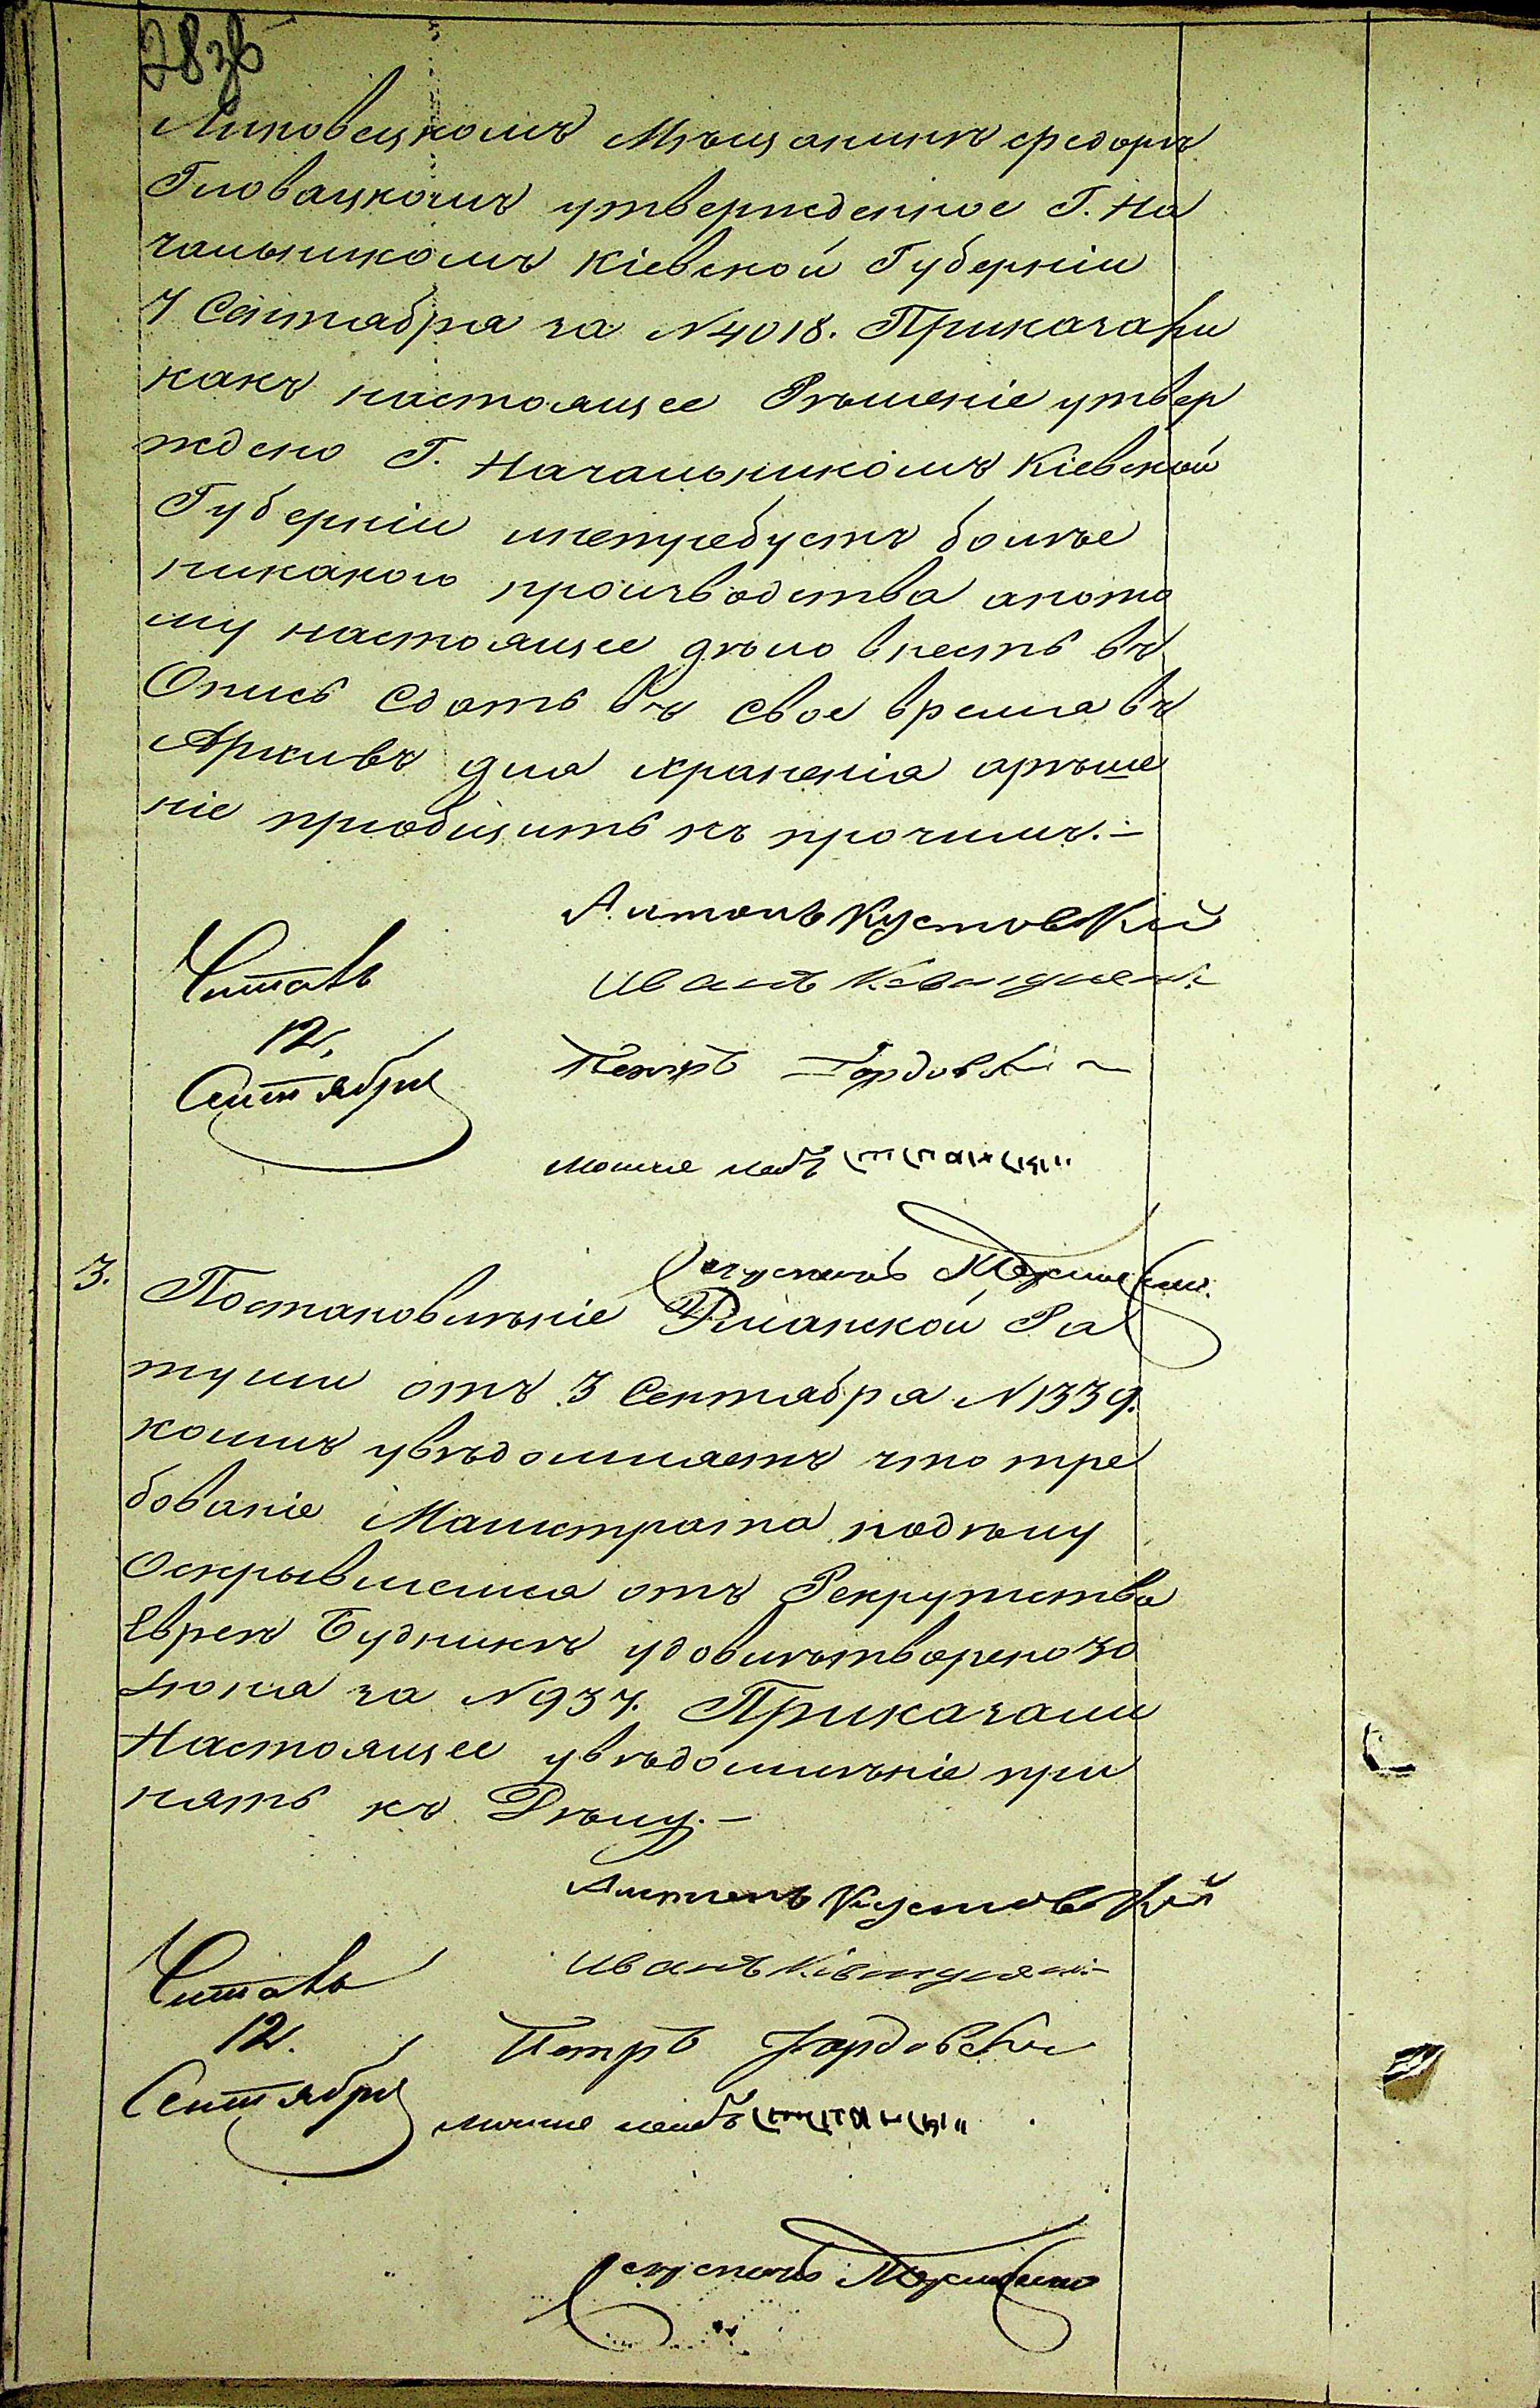 283б
Липовецкомъ Мѣщанинѣ Федорѣ
Гловацкомъ утвержденное Г. На
чальникомъ Кіевской Губерніи
7 Сентября за №4018. Приказали
какъ настоящее Рѣшеніе утвер
ждено Г. Начальникомъ Кіевской
Губерніи инетребуетъ болѣе
никакого производства апото
му настоящее дѣло внесть въ
Опись Сдать въ свое время въ
Архивъ для храненія арѣше
ніе пріобщить къ прочимъ.—
Антонъ Кустовскій
Читалъ
Иванъ
12.
Петръ Гордовскій
Сентября
мошке лейбъ
3.
Постановленіе Уманской Ра
туши отъ 3 Сентября №1339.
коимъ увѣдомляетъ что тре
бованіе Магистрата подѣлу
Оскрывшемся отъ Рекрутства
Евреѣ Будникѣ удовлѣтворено 30
Іюня за №937. Приказали
Настоящее увѣдомлѣніе при
нять къ Дѣлу.—
Антонъ Кустовскій
Читалъ
Иванъ
12.
Петръ Гордовскій
Сентября
мошке лейбъ